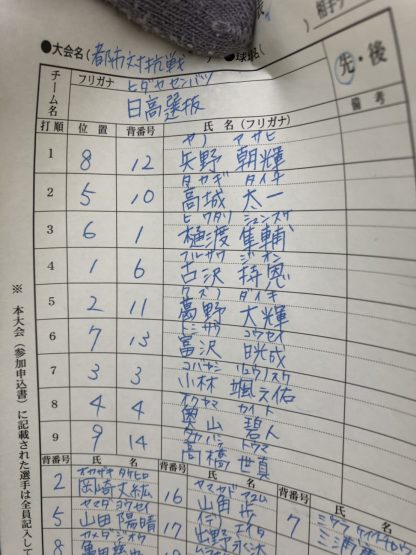 ●大会名(都市対抗戦
●球
相手チ
チーム名
フリガナ ヒダカセンバツ
日高選抜
先・後
打順 位置 背番号 氏名(フリガナ) 備考
ヤノ アサヒ
1 8 12 矢野 朝輝
タカギ タイチ
2 5 10 高城 太一
ヒワタリ シュンスケ
3 6 1 樋渡 隼輔
フルサワ ジオン
4 1 6 古沢 持恩
クズノ ダイキ
5 2 11 葛野 大輝
トミザワ コウセイ
6 7 13 富沢 晄成
コバヤシ リュウノスケ
7 3 3 小林 颯之佑
オクヤマ カイト
8 4 4 奥山 碧人
タカハシ トウマ
9 9 14 高橋 世真
背番号 氏名 背番号 氏名 背番号
オカザキ タケヒロ
2 岡崎 丈紘 16 山田 歩 7
ヤマダ ヨウセイ
5 山田 陽晴 17
8
※本大会(参加申込書)に記載された選手は全員記入して